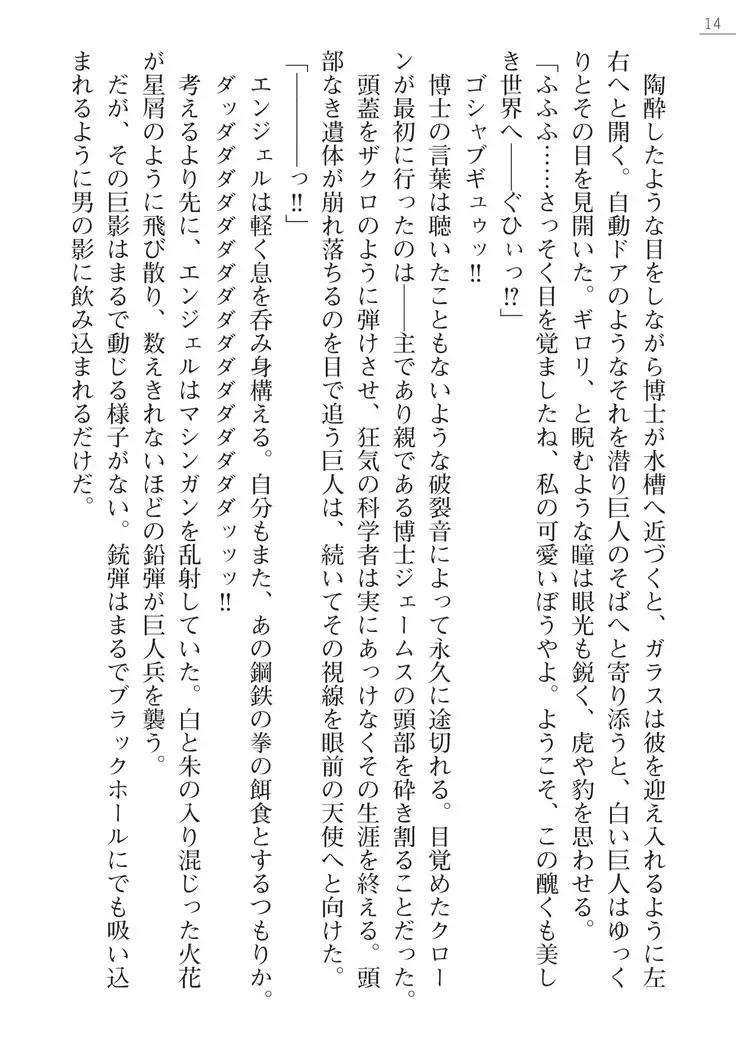 14
　陶酔したような目をしながら博士が水槽へ近づくと、ガラスは彼を迎え入れるように左
右へと開く。自動ドアのようなそれを潜り巨人のそばへと寄り添うと、白い巨人はゆっく
りとその目を見開いた。ギロリ、と睨むような瞳は眼光も鋭く、虎や豹を思わせる。
「ふふふ……さっそく目を覚ましたね、私の可愛いぼうやよ。ようこそ、この醜くも美し
き世界へ――ぐひぃっ!?」
　ゴシャブギュゥッ!!
　博士の言葉は聴いたこともないような破裂音によって永久に途切れる。目覚めたクロー
ンが最初に行ったのは――主であり親である博士ジェームスの頭部を砕き割ることだった。
　頭蓋をザクロのように弾けさせ、狂気の科学者は実にあっけなくその生涯を終える。頭
部なき遺体が崩れ落ちるのを目で追う巨人は、続いてその視線を眼前の天使へと向けた。
「――――っ!!」
　エンジェルは軽く息を呑み身構える。自分もまた、あの鋼鉄の拳の餌食とするつもりか。
　ダッダダダダダダダダダダダダダダダッッッ!!
　考えるより先に、エンジェルはマシンガンを乱射していた。白と朱の入り混じった火花
が星屑のように飛び散り、数えきれないほどの鉛弾が巨人兵を襲う。
　だが、その巨影はまるで動じる様子がない。銃弾はまるでブラックホールにでも吸い込
まれるように男の影に飲み込まれるだけだ。